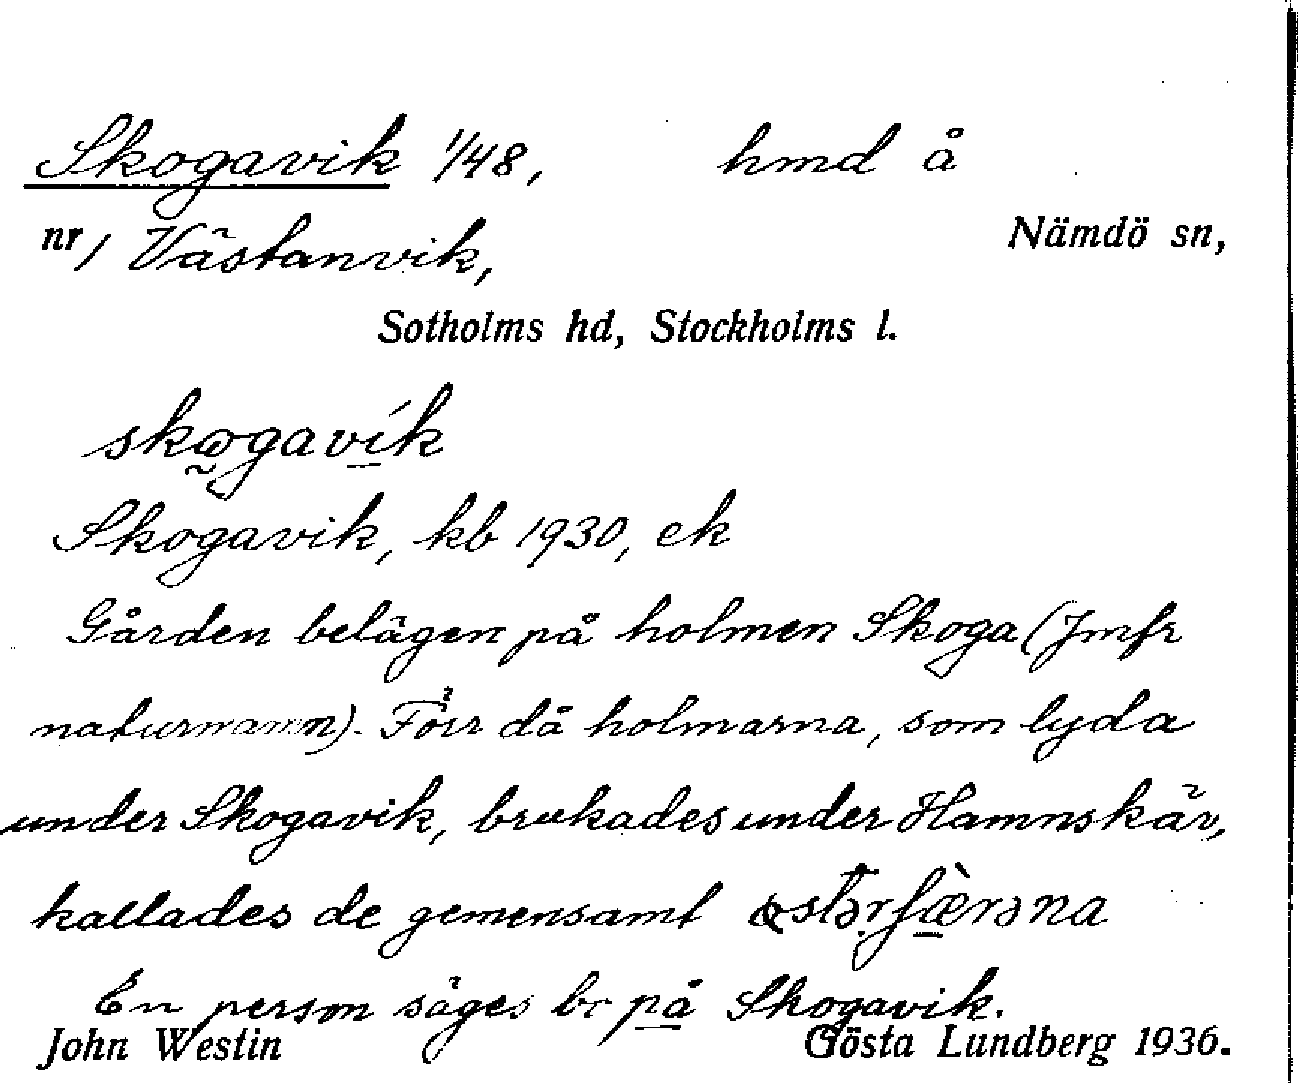 Skogavik 1/48, hmd å
nr / Västanvik, Nämdö sn,
Sotholms hd, Stockholms l.
skogavík
Skogavik, kb 1930, ek
Gården belägen på holmen Skoga (Jmfr
naturnamn). Förr då holmarna, som lyda
under Skogavik, brukades under Hamnskär,
kallades de gemensamt
En person säges bo på Skogavik.
John Westin Gösta Lundberg 1936.